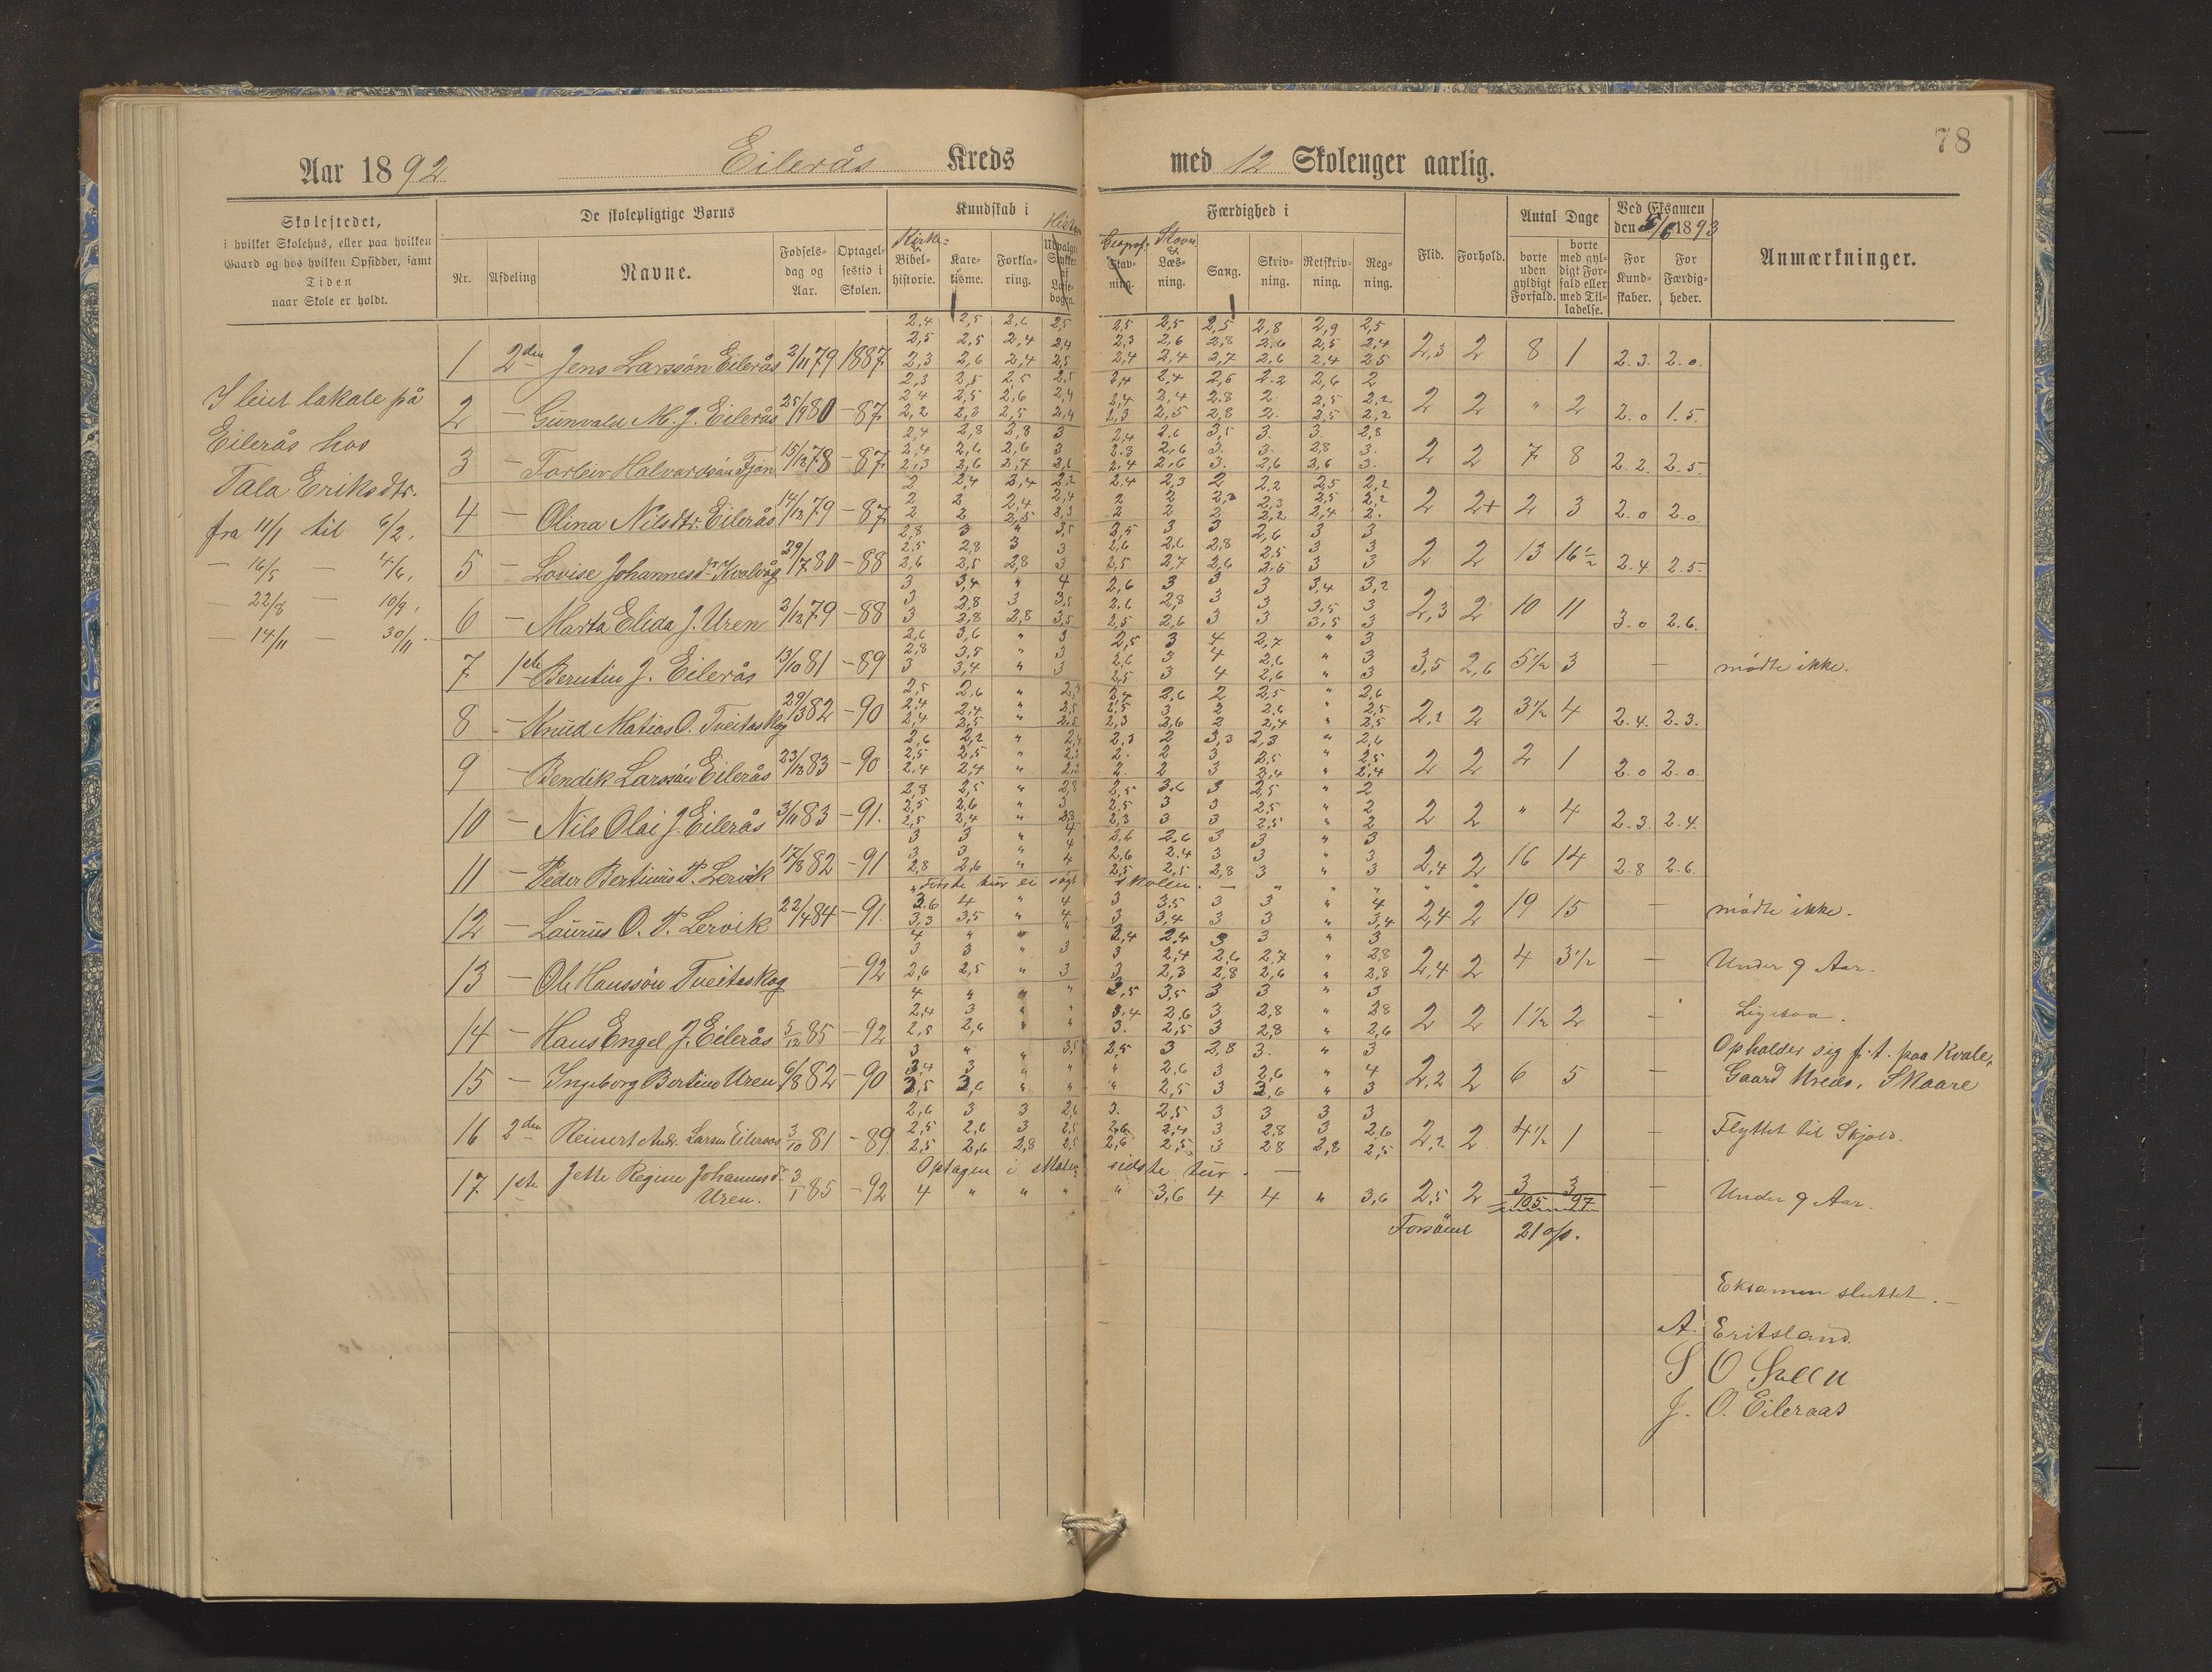 78
Aar 1892 Eilerås Kreds med 12 Skoleuger aarlig.
Skolestedet, i hvilket Skolehus, eller paa hvilken Gaard og hos hvilken Opsidder, samt Tiden naar Skole er holdt.
De skolepligtige Børns
Nr. Afdeling Navne. Fødselsdag og Aar. Optagelsestid i Skolen.
Kundskab i
Bibelhistorie. Katekisme. Forklaring. Udvalgte Stykker af Læsebogen.
Færdighed i
Geograf. Stavning. Læsning. Sang. Skrivning. Retskrivning. Regning.
Flid. Forhold.
Antal Dage
borte uden gyldigt Forfald. borte med gyldigt Forfald eller med Tilladelse.
Ved Eksamen den 5/6 1893
For Kundskaber. For Færdigheder.
Anmærkninger.
I leiet lokale på
Eilerås hos
Tala Eriksdtr.
fra 11/1 til 6/2.
— 16/5 — 4/6.
— 22/8 — 10/9.
— 14/11 — 30/11.
2,4 2,5 2,6 2,5 2,5 2,5 2,5 2,8 2,9 2,5
2,5 2,5 2,4 2,4 2,3 2,6 2,8 2,6 2,5 2,4
1 2den Jens Larssøn Eilerås 2/11 79 1887 2,3 2,6 2,4 2,5 2,4 2,4 2,7 2,6 2,4 2,5 2,3 2 8 1 2.3. 2.0.
2,3 2,5 2,5 2,5 2,4 2,4 2,6 2.2 2,6 2
2,4 2,5 2,6 2,4 2,4 2,4 2,8 2. 2,5 2,2
2 — Gunvald M. J. Eilerås 25/9 80 — 87 2,2 2,3 2,5 2,4 2,3 2,5 2,8 2. 2,5 2,2 2 2 " 2 2.0 1.5.
2,4 2,8 2,8 3 2,4 2.6 3,5 3. 3. 2,8
2,4 2,6 2,6 3 2,3 2,6 3. 3. 2,8 3.
3 — Torleiv Halvardsøn Tjøn 15/12 78 — 87 2,3 2,6 2,7 2,6 2,4 2,6 3. 2,6 2,6 3. 2 2 7 8 2.2. 2.5.
2 2,4 2,4 2,2 2,4 2,3 2 2,2 2,5 2,2
2 2 2,4 2,4 2 2 2,2 2,3 2,5 2,2
4 — Olina Nilsdtr. Eilerås 14/12 79 — 87 2 2 2,5 2,3 2 2 2 2,2 2,4 2. 2 2+ 2 3 2.0 2.0.
2,8 3 " 3,5 2,5 3 3 2,6 3 3
2,5 2,8 3 3 2,6 2,6 2,8 2.5 3 3
5 — Lovise Johannesd. Kvalvåg 29/7 80 — 88 2,6 2,5 2,8 3 2,5 2,7 2,6 2.5 3 3 2 2 13 16 1/2 2.4. 2.5.
3 3,4 " 4 2,6 3 3 3 3,4 3,2
3 2,8 3 3,5 2,6 2,8 3 3 3,5 3
6 — Marta Elida J. Uren 2/12 79 — 88 3 2,8 2,8 3,5 2,5 2,6 3 3 3,5 3 2,3 2 10 11 3.0 2.6.
2,6 3,6 " 3 2,5 3 4 2,7 " 3
2,8 3,5 " 3 2,6 3 4 2,6 " 3
7 1ste Berntin J. Eilerås 13/10 81 — 89 3 3,4 " 3 2,5 3 4 2,6 " 3 3,5 2,6 5 1/2 3 — mødte ikke.
2,5 2,6 " 2,4 2,4 2,6 2 2,5 " 2,6
2,4 2,4 " 2,5 2,5 3 2 2,6 " 2,5
8 — Knud Matias O. Tveitaskog 29/3 82 — 90 2,4 2,5 " 2,5 2,3 2,6 2 2,4 " 2,5 2,2 2 3 1/2 4 2.4. 2.3.
2,6 2,2 " 2,4 2,3 2 3,3 2,3 " 2,6
2,5 2,5 " 2,3 2. 2 3 2.5 " 2,5
9 — Bendik Larssøn Eilerås 23/12 83 — 90 2,4 2,4 " 2,2 2. 2 3 2,4 " 2,4 2 2 2 1 2.0 2.0.
2,8 2,5 " 2,8 2,5 3.6 3 2,5 " 2
2,5 2,6 " 3 2,5 3 3 2,5 " 2
10 — Nils Olai J. Eilerås 3/11 83 — 91. 2,5 2,4 " 2,8 2,3 3 3 2,5 " 2 2 2 " 4 2.3. 2.4.
3 3 " 4 2,6 2,6 3 3 " 3
3 3 " 4 2,6 2.4 3 3 " 3
11 — Peder Bertinius P. Lervik 17/8 82 — 91 2,8 2,6 " 4 2,5 2,5 2,8 3 " 3 2,4 2 16 14 2.8 2.6.
"Første tur ei søgt skolen. — " " " " "
3,6 4 " 4 3 3,5 3 3 " 4
12 — Laurus O. P. Lervik 22/4 84 — 91. 3,3 3,5 " 4 3 3,4 3 3 " 3,4 2,4 2 19 15 — mødte ikke.
4 " " " 2,4 2,4 3 3 " 3
3 3 " 3 3 2,4 2,6 2,7 " 2,8
13 — Ole Hanssøn Tveitaskog — 92 2,6 2,5 " 3 3 2,3 2,8 2,6 " 2,8 2,4 2 4 3 1/2 — Under 9 Aar.
4 " " " 3,5 3,5 3 3 " 3
2,4 3 " " 3,4 2,6 3 2,8 " 2,8
14 — Hans Engel J. Eilerås 5/12 85 — 92 2,8 2,6 " " 3. 2,5 3 2,8 " 2,6 2 2 1 1/2 2 — Ligesaa.
3 " " 3,5 2,5 3 2,8 3. " 3
3,4 3 " " " 2.6 3 2,6 " 4
15 — Ingeborg Bertine Uren 6/8 82 — 90 3,5 3,6 " " " 2,5 3 2,6 " 3 2,2 2 6 5 — Opholder sig f. t. paa Kvale, Gaard Kreds, Skaare
2,6 3 3 2,6 3. 2,5 3 3 3 3
2,5 2,6 3 2,5 2,6 2,4 3 2,8 3 2,6
16 2den Reinert Andr. Larsen Eileraas 3/10 81 — 89 2,5 2,6 2,8 2,5 2,6 2,5 3 2,8 2,8 2,5 2,2 2 4 1/2 1 — Flyttet til Skjold.
Optagen i skolen sidste tur. —
17 1ste Jette Regine Johannesd. Uren. 3/1 85 — 92 4 " " " " 3,6 4 4 " 3,6 2,5 2 3 3 — Under 9 Aar.
105 97
Forsømt 21 o/o.
Eksamen sluttet. —
A. Eritsland.
S O Saleen
J. O. Eileraas